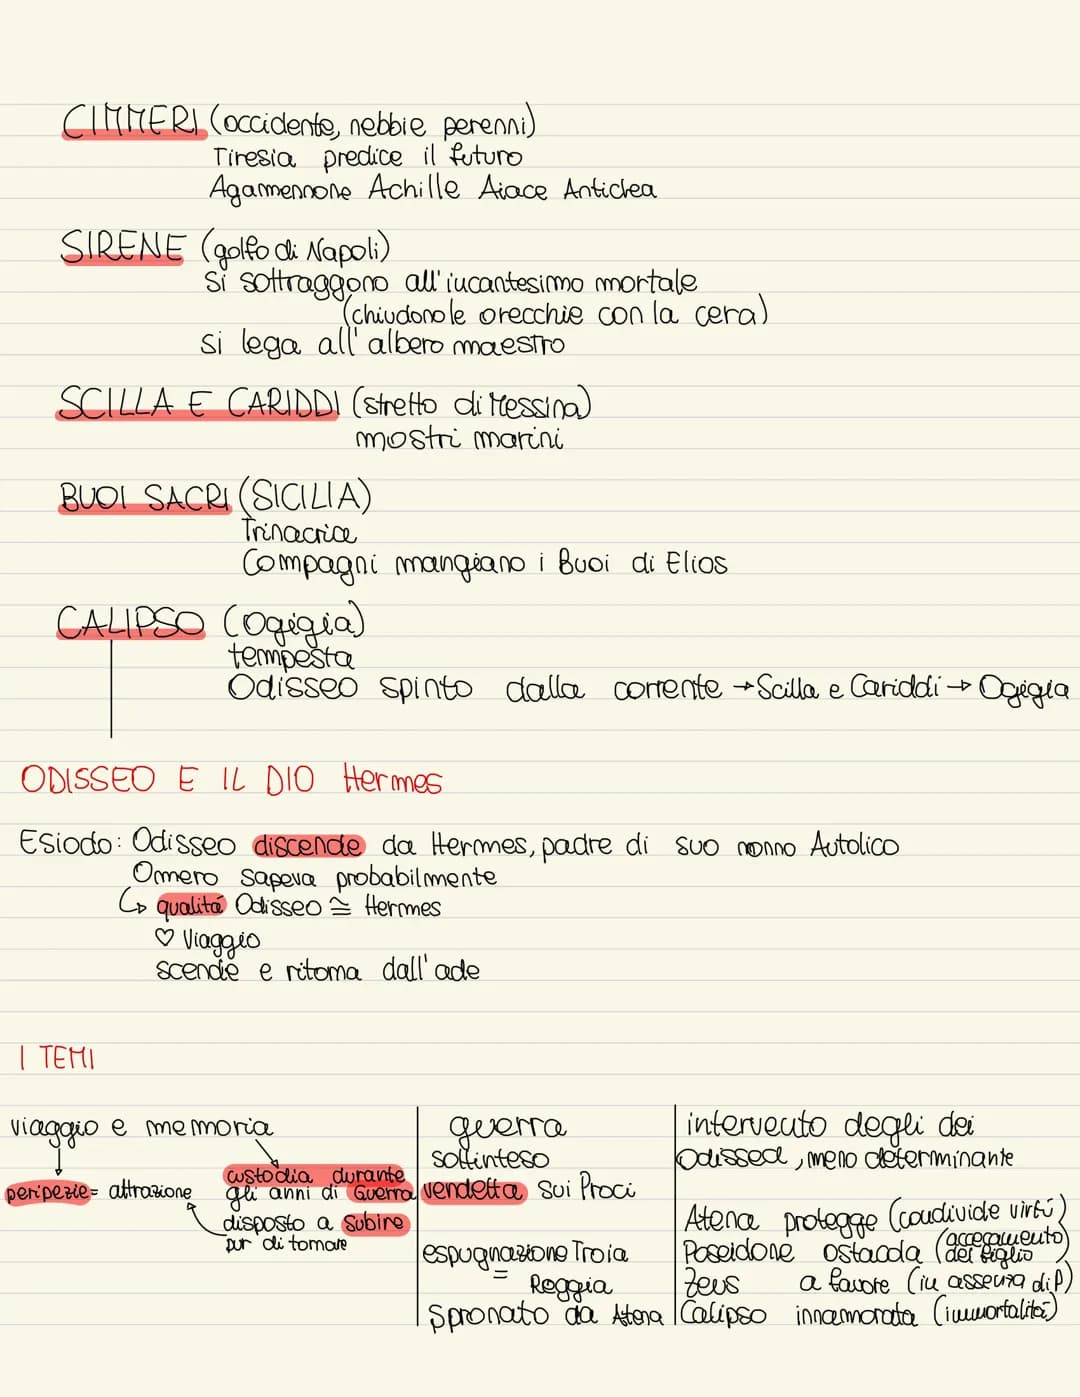 CIMMERI (occidente, nebbie perenni)
Tiresia predice il futuro
Agamennone Achille Aiace Anticlea
SIRENE (golfo di Napoli)
si sottraggono all'incantesimo mortale
(chiudono le orecchie con la cera)
si lega all'albero maestro
SCILLA E CARIDDI (stretto di Messina)
mostri marini
BUOI SACRI (SICILIA)
Trinacria
Compagni mangiano i Buoi di Elios
CALIPSO (Ogigia)
tempesta
Odisseo spinto dalla corrente → Scilla e Cariddi → Ogigia
ODISSEO E IL DIO Hermes
Esiodo: Odisseo discende da Hermes, padre di suo nonno Autolico
Omero sapeva probabilmente
↳ qualitá Odisseo ≅ Hermes
♡ Viaggio
scende e ritorna dall'ade
I TEMI
viaggio e memoria
peripezie = attrazione
custodia durante
gli anni di Guerra
disposto a subire
pur di tornare
guerra
sottinteso
vendetta sui Proci
espugnazione Troia
=
Reggia
Spronato da Atena
intervento degli dei
Odissea, meno determinante
Atena protegge (condivide virtú)
Poseidone ostacola (accecamento del figlio)
Zeus a favore (in assenza di P)
Calipso innamorata (immortalitá)